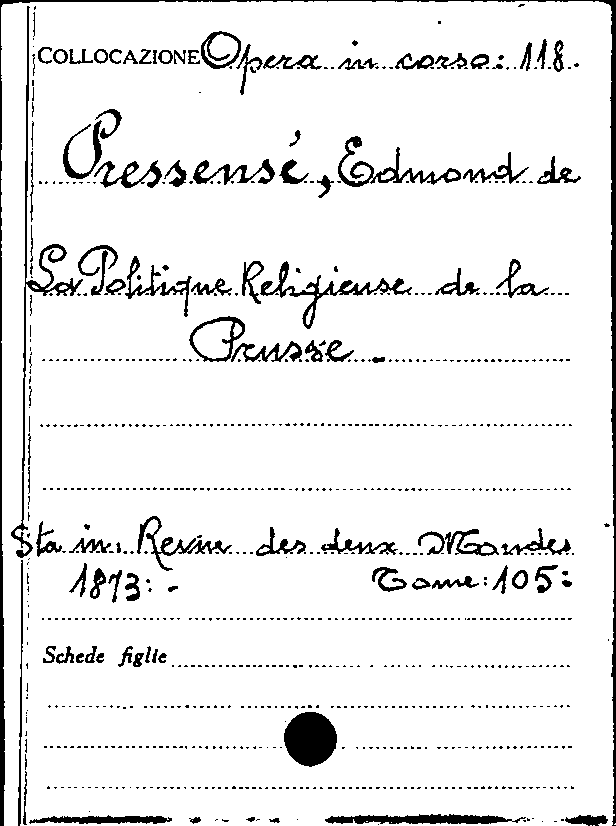 COLLOCAZIONE Opera in corso: 118.
Pressensé, Edmond de
La Politique Religieuse de la
Prusse -
Sta in: Revue des deux Mondes
1873: - Tome: 105:
Schede figlie